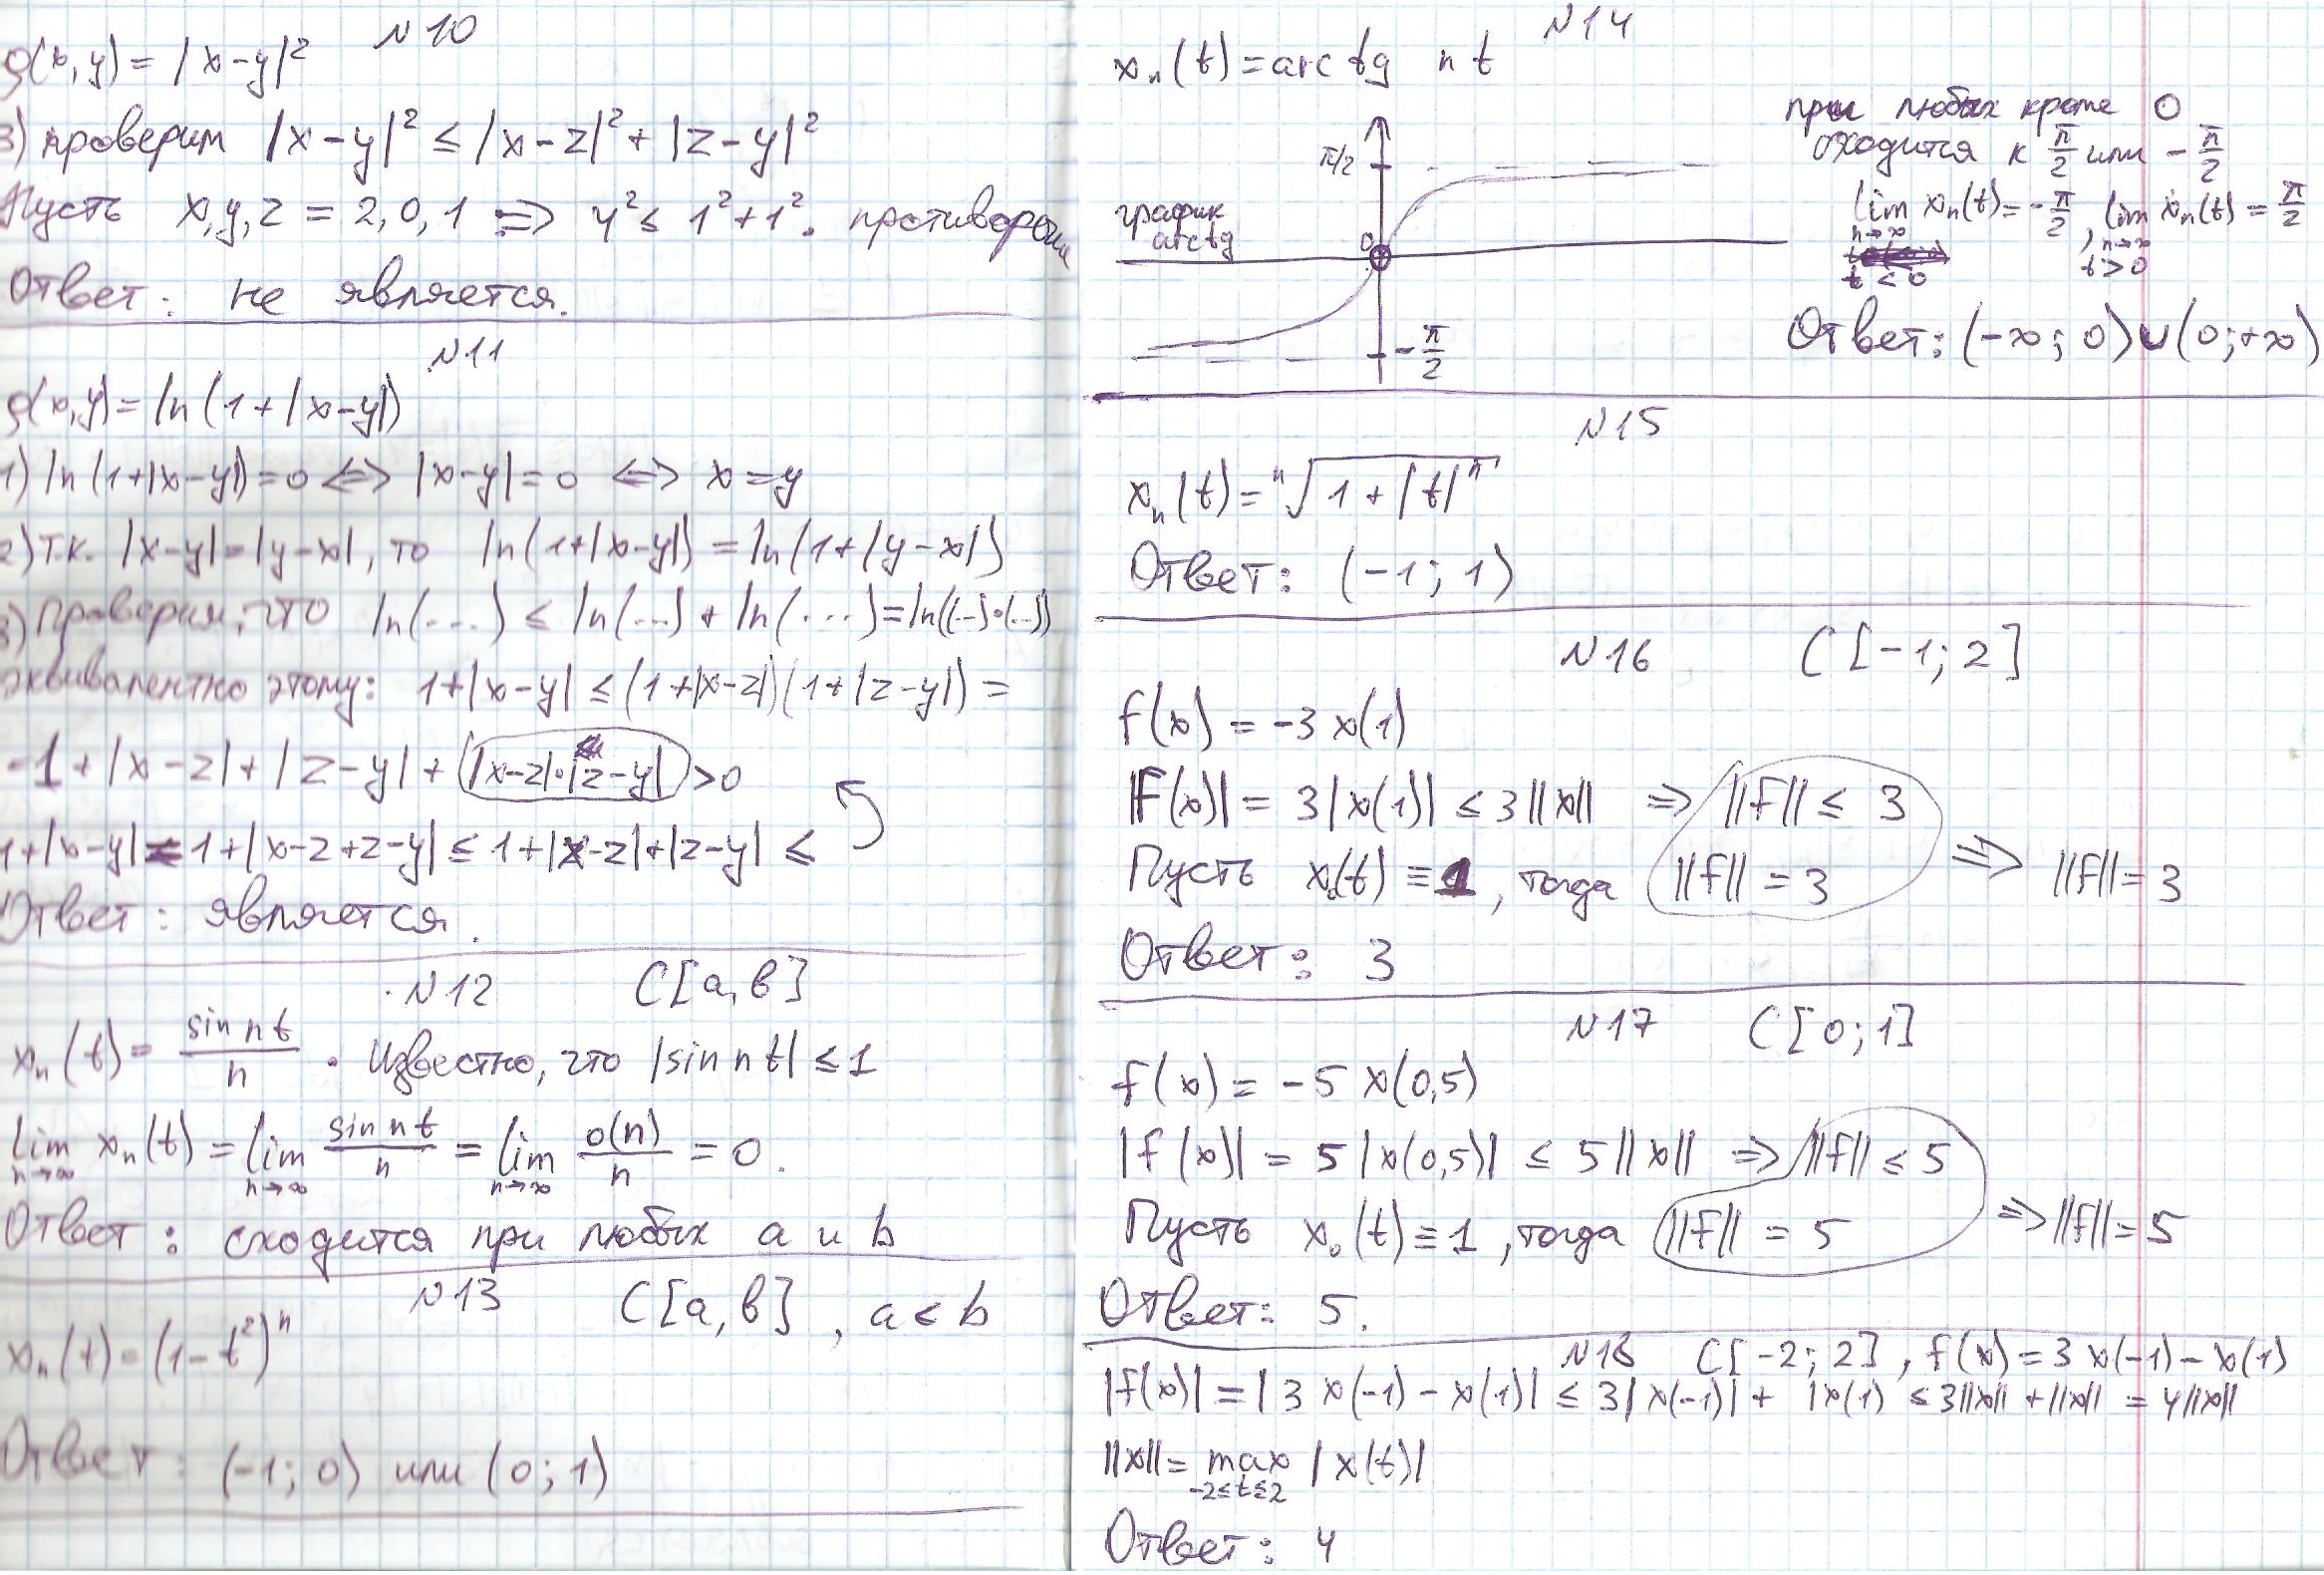 №10
ρ(x,y) = |x-y|²
3) проверим |x-y|² ≤ |x-z|² + |z-y|²
Пусть x,y,z = 2,0,1 ⇒ 4² ≤ 1²+1². противоречие
Ответ: не является.
№11
ρ(x,y) = ln(1+|x-y|)
1) ln(1+|x-y|) = 0 ⇔ |x-y| = 0 ⇔ x = y
2) т.к. |x-y| = |y-x|, то ln(1+|x-y|) = ln(1+|y-x|)
3) Проверим, что ln(...) ≤ ln(...) + ln(...) = ln((...)·(...))
эквивалентно этому: 1+|x-y| ≤ (1+|x-z|)(1+|z-y|) =
=1+|x-z|+|z-y|+|x-z|·|z-y| >0
1+|x-y| = 1+|x-z+z-y| ≤ 1+|x-z|+|z-y| ≤
Ответ: является.
№12 C[a,b]
xₙ(t) = sin nt / n . Известно, что |sin nt| ≤ 1
lim n→∞ xₙ(t) = lim n→∞ sin nt / n = lim n→∞ o(n) / n = 0.
Ответ: сходится при любых a и b
№13 C[a,b], a < b
xₙ(t) = (1-t²)ⁿ
Ответ: (-1; 0) или (0; 1)
№14
xₙ(t) = arctg nt
π/2
график
arctg
0
-π/2
при любых кроме 0
сходится к π/2 или -π/2
lim n→∞ t<0 xₙ(t) = -π/2, lim n→∞ t>0 xₙ(t) = π/2
Ответ: (-∞; 0)∪(0;+∞)
№15
xₙ(t) = ⁿ√(1+|t|ⁿ)
Ответ: (-1; 1)
№16 C[-1; 2]
f(x) = -3x(1)
|F(x)| = 3|x(1)| ≤ 3||x|| ⇒ ||f|| ≤ 3
Пусть x₀(t) ≡ 1, тогда ||f|| = 3 ⇒ ||f|| = 3
Ответ: 3
№17 C[0; 1]
f(x) = -5x(0,5)
|f(x)| = 5|x(0,5)| ≤ 5||x|| ⇒ ||f|| ≤ 5
Пусть x₀(t) ≡ 1, тогда ||f|| = 5 ⇒ ||f|| = 5
Ответ: 5.
№18 C[-2; 2], f(x) = 3x(-1) - x(1)
|f(x)| = |3x(-1) - x(1)| ≤ 3|x(-1)| + |x(1) ≤ 3||x|| + ||x|| = 4||x||
||x|| = max -2≤t≤2 |x(t)|
Ответ: 4